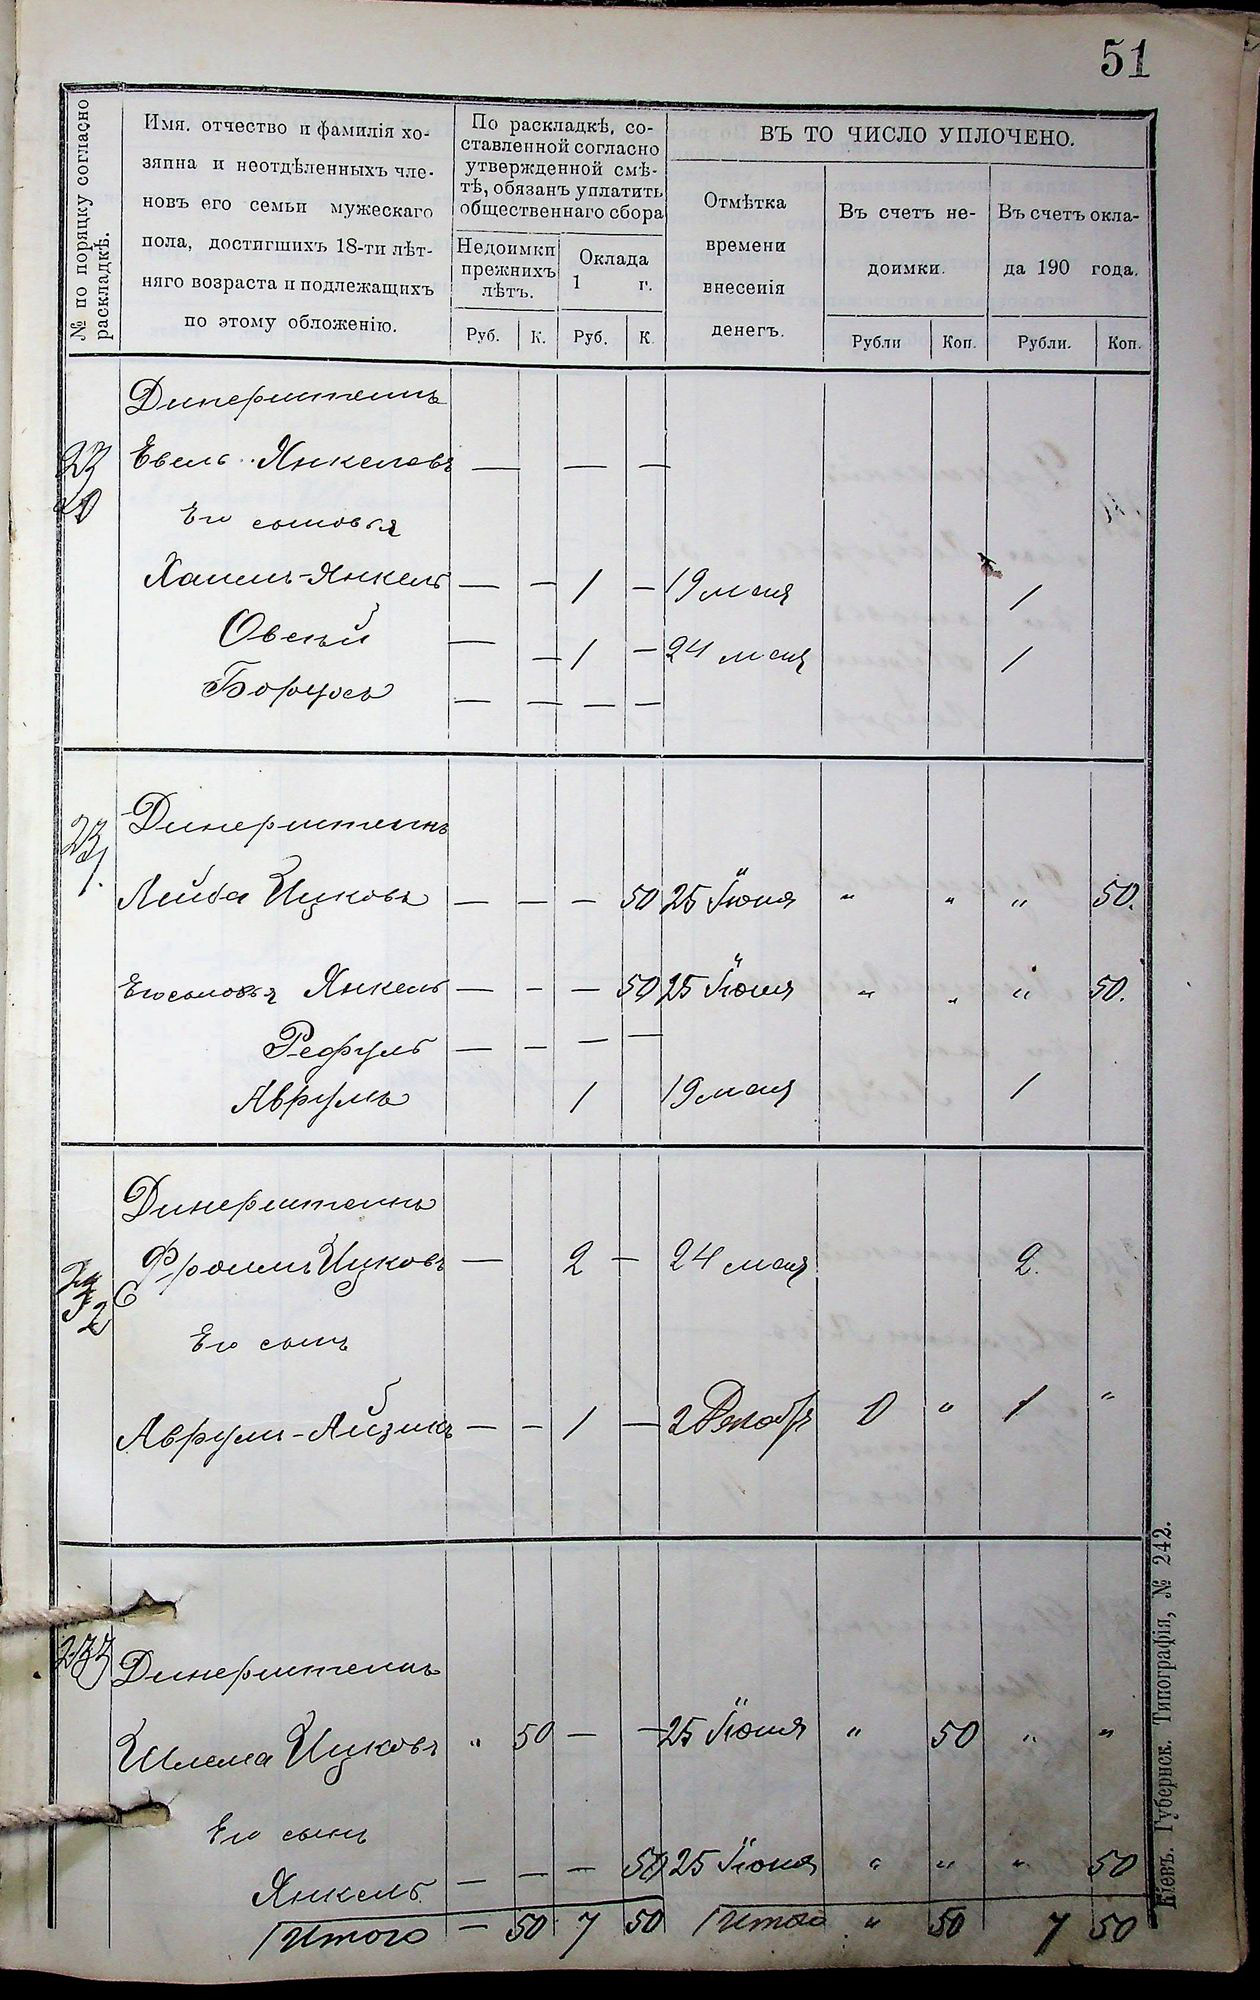 51
№ по порядку согласно раскладкѣ.
Имя, отчество и фамилія хо-
зяина и неотдѣленныхъ чле-
новъ его семьи мужескаго
пола, достигшихъ 18-ти лѣт-
няго возраста и подлежащихъ
по этому обложенію.
По раскладкѣ, со-
ставленной согласно
утвержденной смѣ-
тѣ, обязанъ уплатить
общественнаго сбора
Недоимки
прежнихъ
лѣтъ.
Оклада
1 г.
ВЪ ТО ЧИСЛО УПЛОЧЕНО.
Отмѣтка
времени
внесенія
денегъ.
Въ счетъ не-
доимки.
Въ счетъ окла-
да 190 года.
Руб. К. Руб. К. Рубли Коп. Рубли. Коп.
Динерштеинъ
230 Евель Янкелевъ — — —
Его сыновья
Хаимъ-Янкель — — 1 — 19 мая 1
Овсѣй — — 1 — 24 мая 1
Борухъ — — — —
Динерштеинъ
231.
Лейба Ицковъ — — — 50 25 Іюня " " " 50.
Его сыновья Янкель — — — 50 25 Іюня " " " 50.
Рефуль — — — —
Аврумъ 1 19 мая 1
Динерштеинъ
232 Фроимъ Ицковъ — 2 — 24 мая 2.
Его сынъ
Аврум-Айзикъ — — 1 — 2 Декабря 0 " 1 "
233 Динерштеинъ
Шлема Ицковъ " 50 — — 25 Іюня " 50 " "
Его сынъ
Янкель — — — 50 25 Іюня " " " 50
Итого — 50 7 50 Итого " 50 7 50
Кіевъ. Губернск. Типографія, № 242.